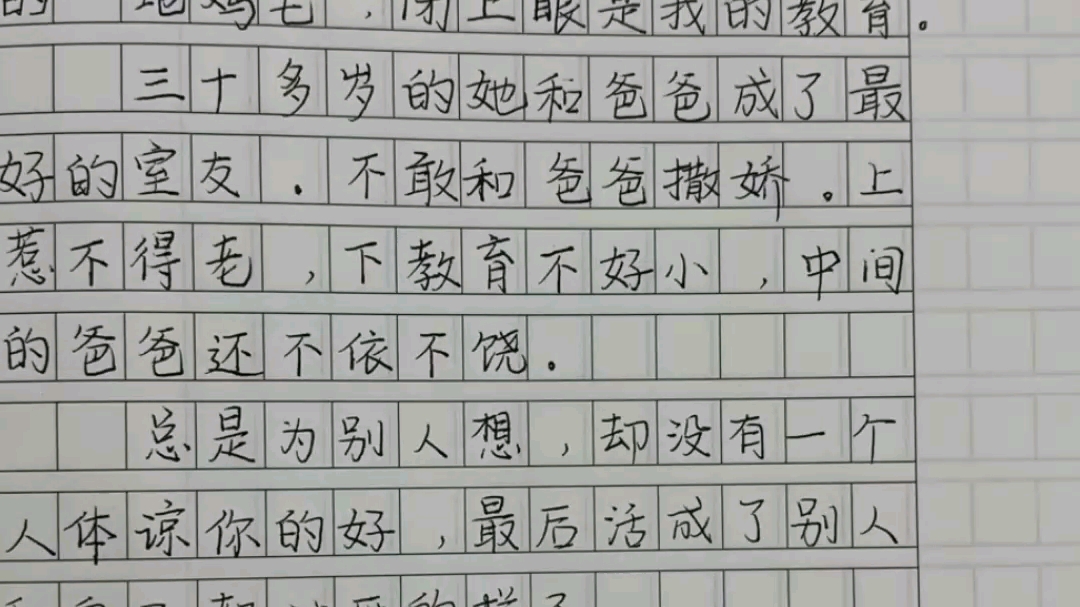 的一地鸡毛，闭上眼是我的教育。
三十多岁的她和爸爸成了最
好的室友．不敢和爸爸撒娇。上
惹不得老，下教育不好小，中间
的爸爸还不依不饶．
总是为别人想，却没有一个
人体谅你的好，最后活成了别人
的样子